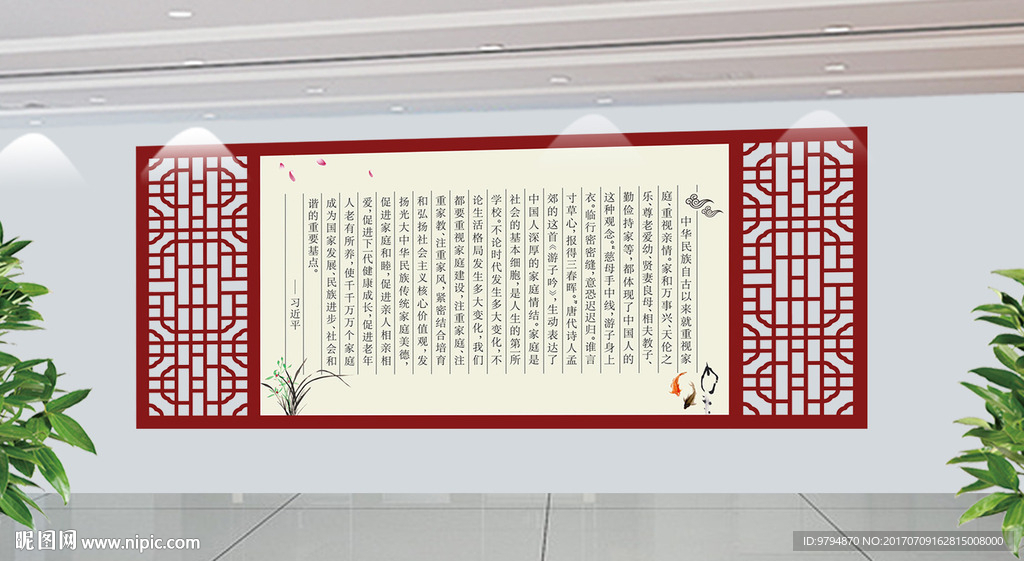 中华民族自古以来就重视家
庭、重视亲情。家和万事兴、天伦之
乐、尊老爱幼、贤妻良母、相夫教子、
勤俭持家等，都体现了中国人的
这种观念。“慈母手中线，游子身上
衣。临行密密缝，意恐迟迟归。谁言
寸草心，报得三春晖。”唐代诗人孟
郊的这首《游子吟》，生动表达了
中国人深厚的家庭情结。家庭是
社会的基本细胞，是人生的第一所
学校。不论时代发生多大变化，不
论生活格局发生多大变化，我们
都要重视家庭建设，注重家庭、注
重家教、注重家风，紧密结合培育
和弘扬社会主义核心价值观，发
扬光大中华民族传统家庭美德，
促进家庭和睦，促进亲人相亲相
爱，促进下一代健康成长，促进老年
人老有所养，使千千万万个家庭
成为国家发展、民族进步、社会和
谐的重要基点。
——习近平
昵图网 www.nipic.com
ID:9794870 NO:20170709162815008000